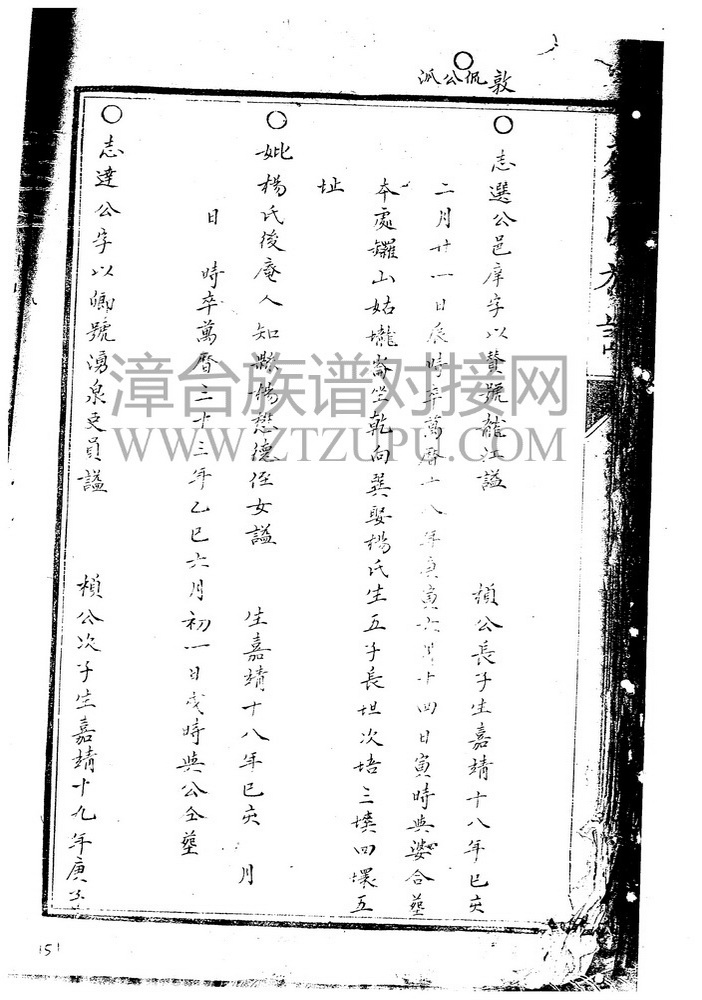 敦侃公派
志選公邑庠字以贊號龍江謚 楨公長子生嘉靖十八年己亥
二月廿一日辰時卒萬曆十八年庚寅六月十四日寅時與婆合葬
本處鑼山姑壠崙坐乾向巽娶楊氏生五子長坦次培三墣四環五
址
妣楊氏後庵人知縣楊懋德侄女謚 生嘉靖十八年己亥 月
日 時卒萬曆三十三年乙巳六月初一日戌時與公仝葬
志達公字以卿號湧泉吏員謚 楨公次子生嘉靖十九年庚子
漳台族谱对接网
WWW.ZTZUPU.COM
151